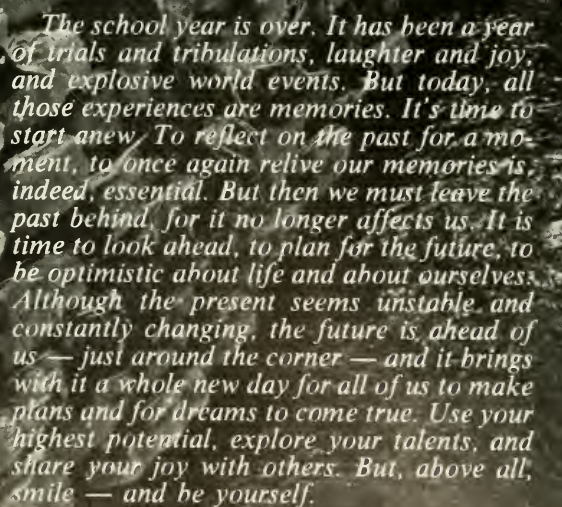 The school year is over. It has been a year
of trials and tribulations, laughter and joy,
and explosive world events. But today, all
those experiences are memories. It's time to
start anew. To reflect on the past for a mo-
ment, to once again relive our memories is,
indeed, essential. But then we must leave the
past behind, for it no longer affects us. It is
time to look ahead, to plan for the future, to
be optimistic about life and about ourselves.
Although the present seems unstable and
constantly changing, the future is ahead of
us — just around the corner — and it brings
with it a whole new day for all of us to make
plans and for dreams to come true. Use your
highest potential, explore your talents, and
share your joy with others. But, above all,
smile — and be yourself.